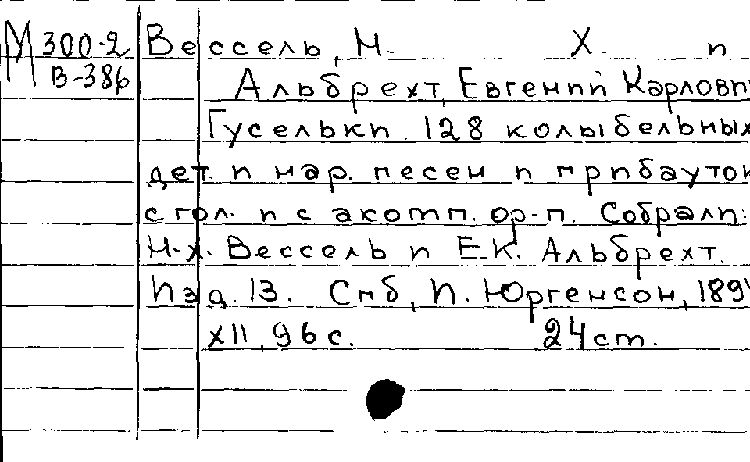 М300-2 Вессель, Н. Х. и
В-386 Альбрехт, Евгений Карлови
Гусельки. 128 колыбельных
дет. и нар. песен и прибауток
с гол. и с акомп. ф-п. Собрали:
Н.Х. Вессель и Е.К. Альбрехт.
Изд. 13. Спб, И. Юргенсон, 189
XII, 96 с. 24 ст.